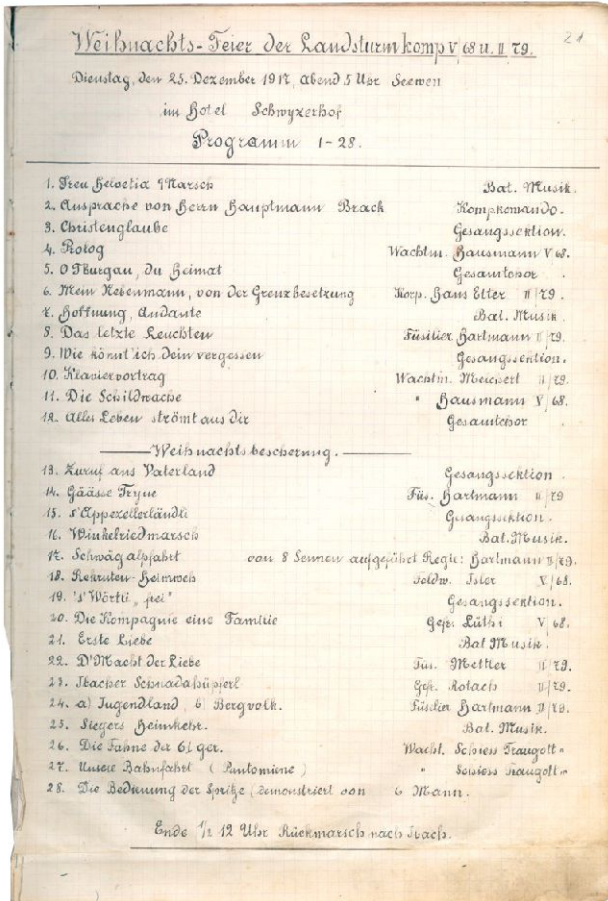 21
Weihnachts-Feier der Landsturmkomp V/68 u. II 79.
Dienstag, den 25. Dezember 1917, abend 5 Uhr Seewen
im Hotel Schwyzerhof
Programm 1-28.
1. Treu Helvetia Marsch Bat. Musik.
2. Ansprache von Herrn Hauptmann Brack Kompkomando.
3. Christenglaube Gesangssektion.
4. Prolog Wachtm. Hausmann V 68.
5. O Thurgau, du Heimat Gesamtchor.
6. Mein Nebenmann, von der Grenzbesetzung Korp. Hans Etter II/79.
7. Hoffnung, Andante Bat. Musik.
8. Das letzte Leuchten Füsilier Hartmann II/79.
9. Wie könnt ich dein vergessen Gesangssektion.
10. Klaviervortrag Wachtm. Meichert II/79.
11. Die Schildwache " Hausmann V/68.
12. Alles Leben strömt aus dir Gesamtchor
Weihnachtsbescherung.
13. Zuruf ans Vaterland Gesangssektion.
14. Gäässe Füs. Hartmann II/79
15. s'Appezellerländli Gesangssektion.
16. Winkelriedmarsch Bat. Musik.
17. Schwägalpfahrt von 8 Sennen aufgeführt Regie: Hartmann II/79.
18. Rekruten-Heimweh Feldw. Isler V/68.
19. 's' Wörtli „frei" Gesangssektion.
20. Die Kompagnie eine Familie Gefr. Lüthi V/68.
21. Erste Liebe Bat Musik.
22. D'Macht der Liebe Füs. Mettler II/79.
23. Ibacher Schnadahüpferl Gefr. Rotach II/79.
24. a) Jugendland, b Bergvolk. Füsilier Hartmann II/79.
25. Siegers Heimkehr. Bat. Musik.
26. Die Fahne der 61 ger. Wacht. Schiess Traugott "
27. Unsere Bahnfahrt (Pantomime) " Schiess Traugott "
28. Die Bedienung der Spritze (demonstriert von 6 Mann.
Ende 1/2 12 Uhr Rückmarsch nach Ibach.